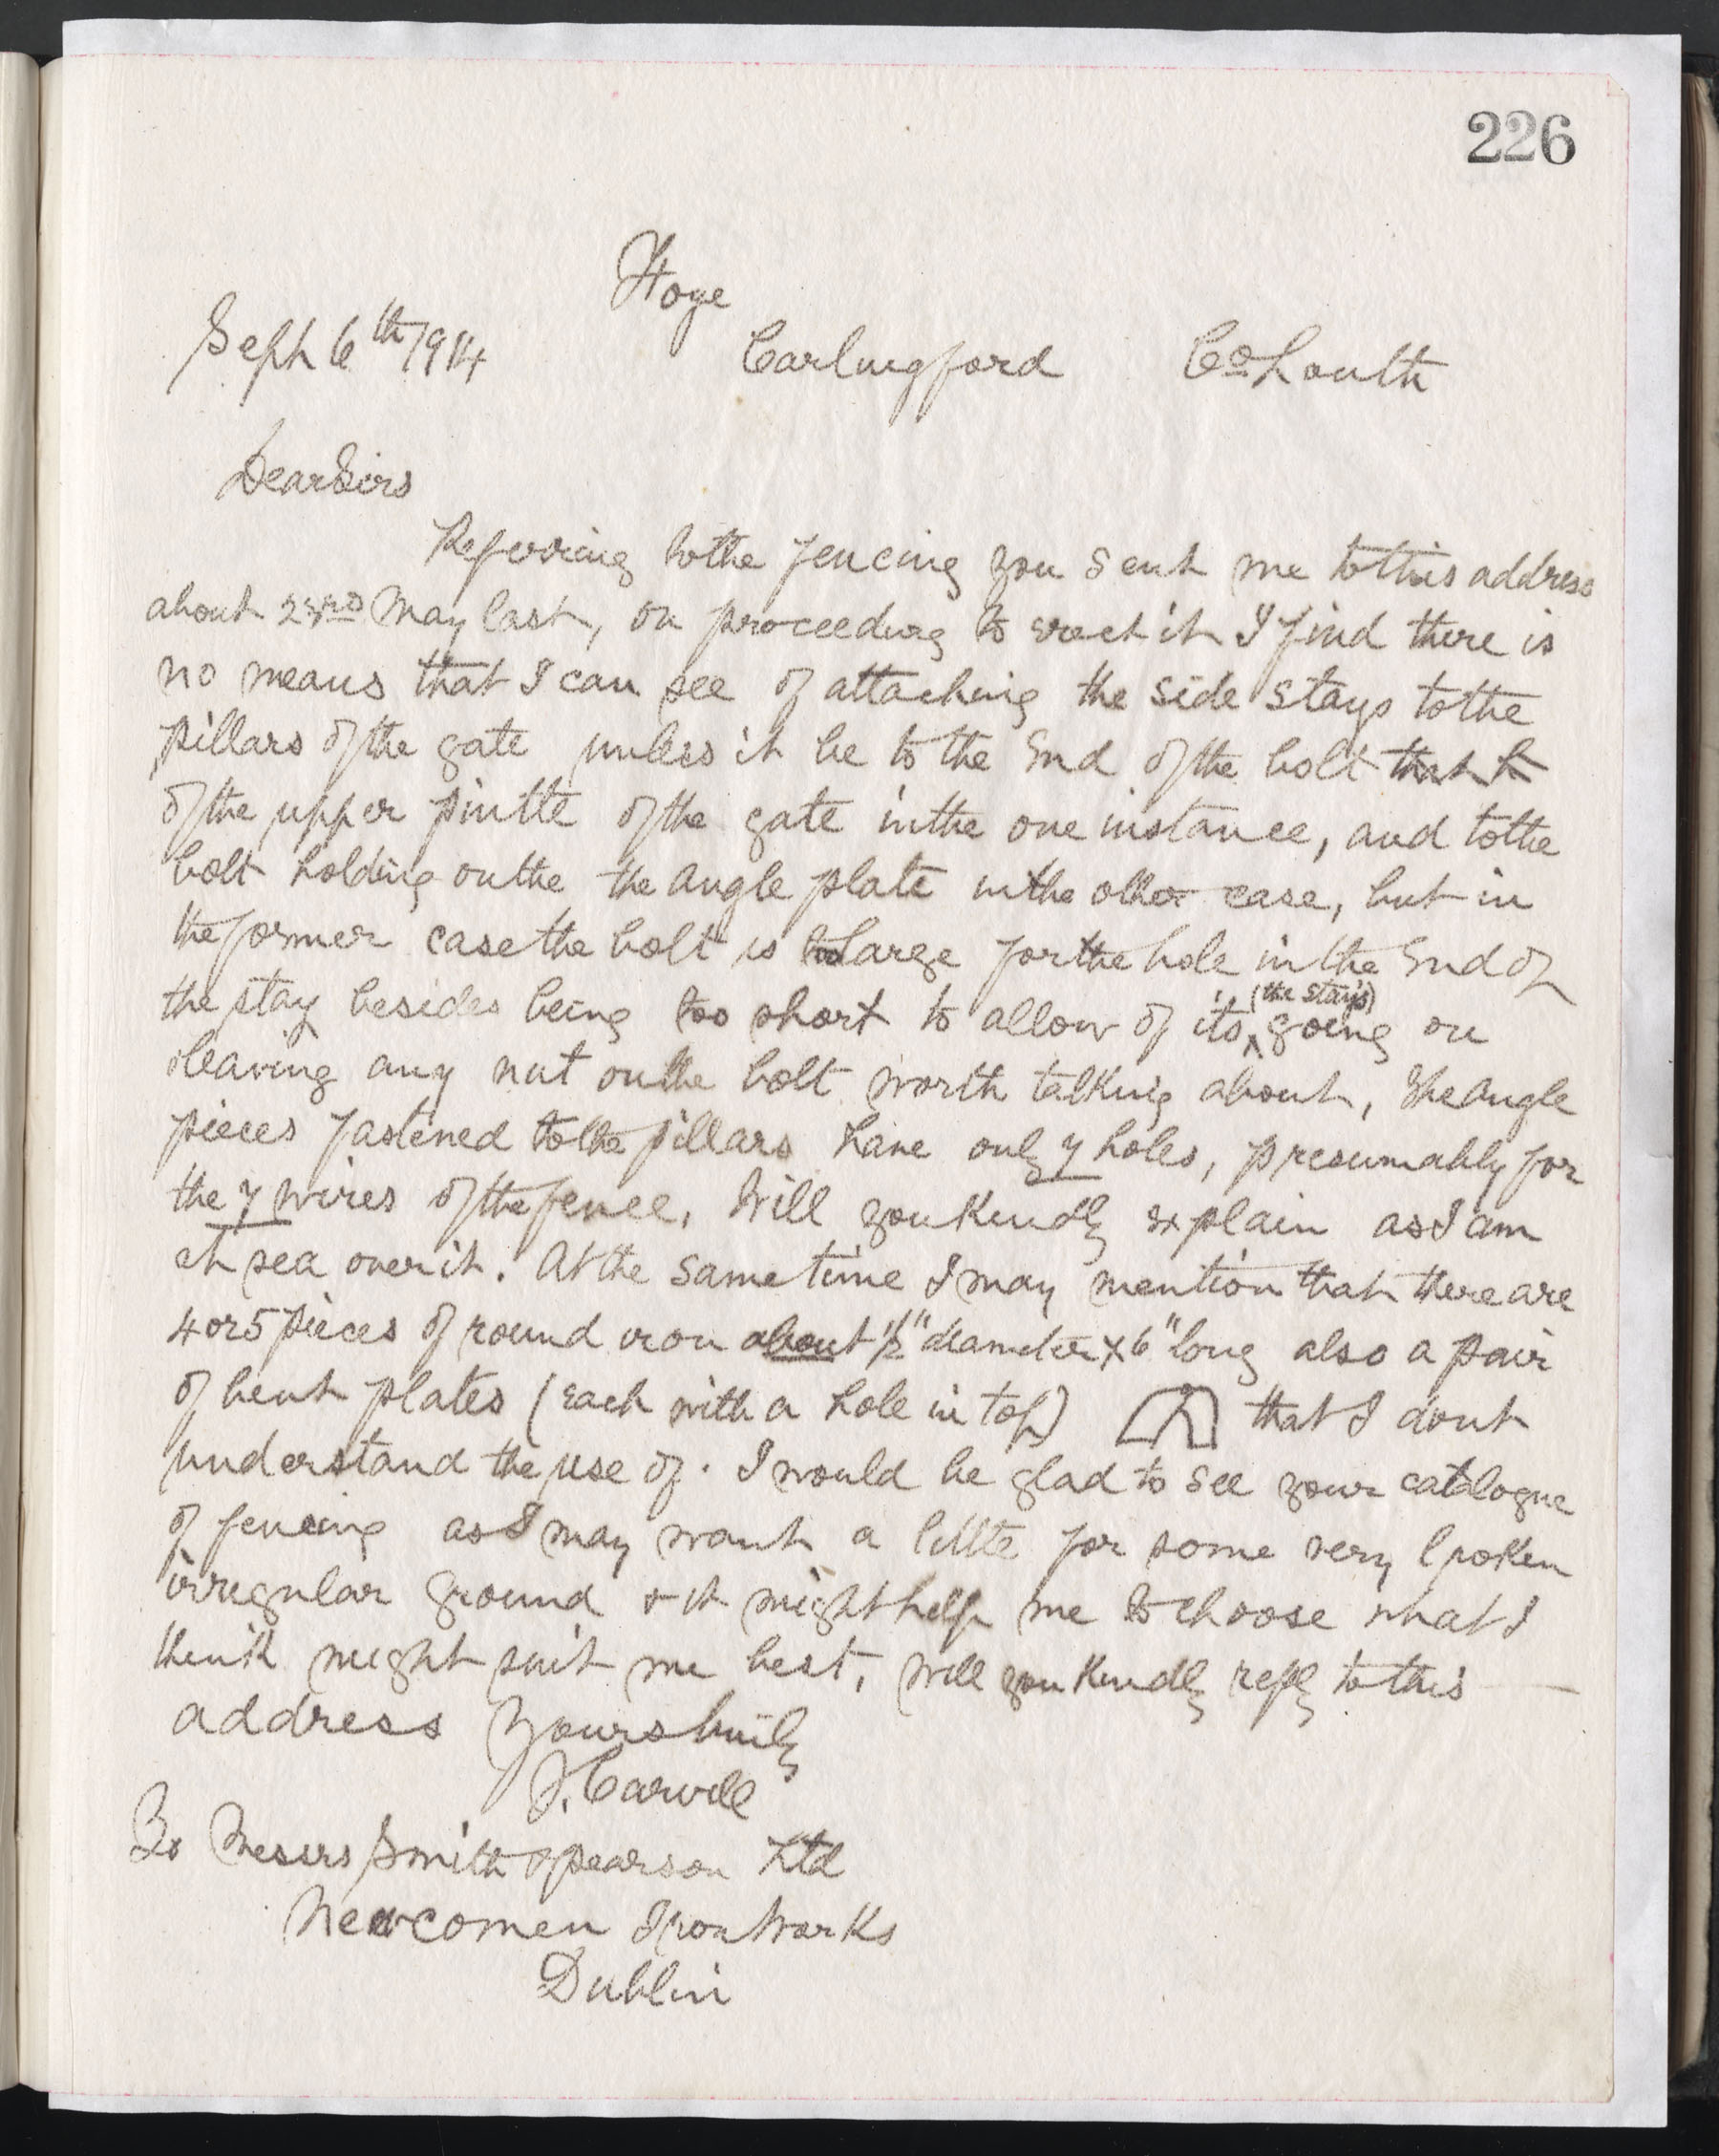 226
Hoye
Sept 6th 1914 Carlingford Co Louth
Dear Sirs
Referring to the fencing you sent me to this address
about 23rd May last, on proceeding to erect it I find there is
no means that I can see of attaching the side stays to the
pillars of the gate unless it be to the End of the bolt that h
of the upper pintle of the gate in the one instance, and to the
bolt holding on the the angle plate in the other case, but in
the former case the bolt is too large for the hole in the End of
the stay besides being too short to allow of its (the stay's) going on
leaving any nut on the bolt worth talking about, The angle
pieces fastened to the pillars have only 7 holes, presumably for
the 7 wires of the fence, Will you Kindly explain as I am
at sea over it. At the same time I may mention that there are
4 or 5 pieces of round iron about 1/2" diameter x 6" long also a pair
of bent plates (each with a hole in top) that I dont
understand the use of. I would be glad to see your catalogue
of fencing as I may want a little for some very broken
irregular ground & it might help me to choose what I
think might suit me best, Will you Kindly reply to this
address Yours truly
J. Carvill
To Messrs Smith & Pearson Ltd
Newcomen Iron Works
Dublin